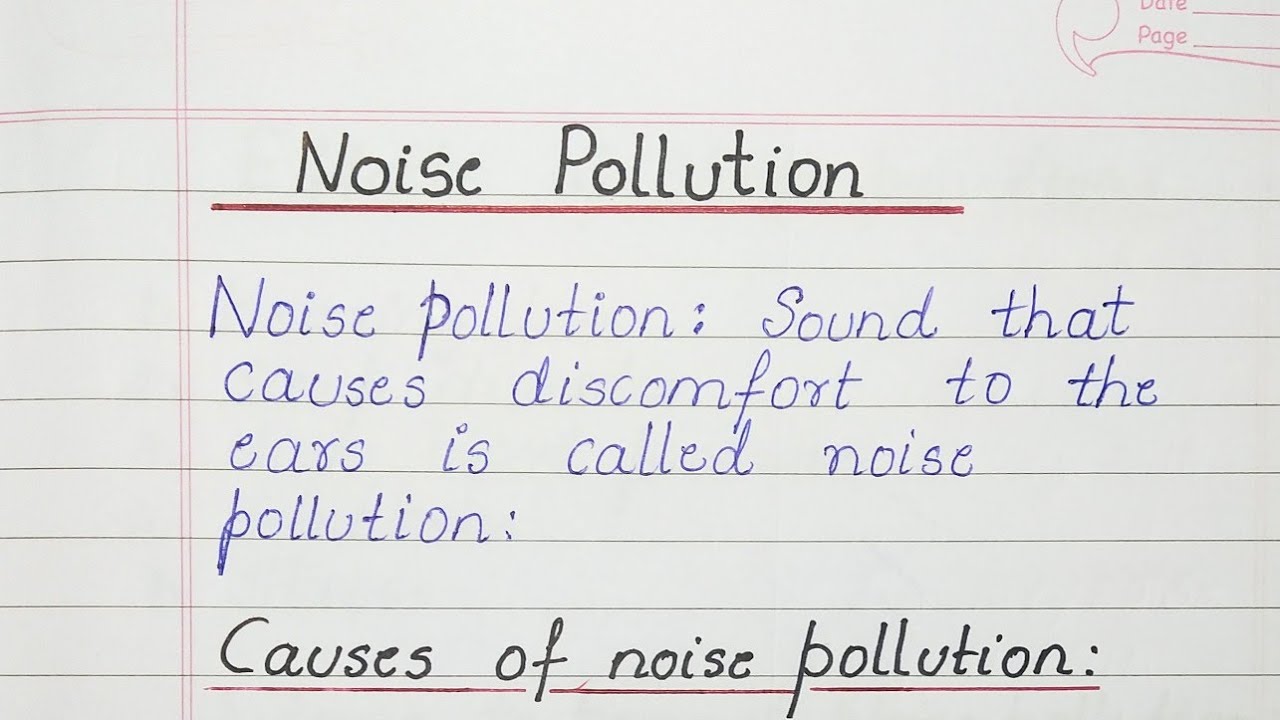 Date
Page
Noise Pollution
Noise pollution: Sound that
causes discomfort to the
ears is called noise
pollution:
Causes of noise pollution: